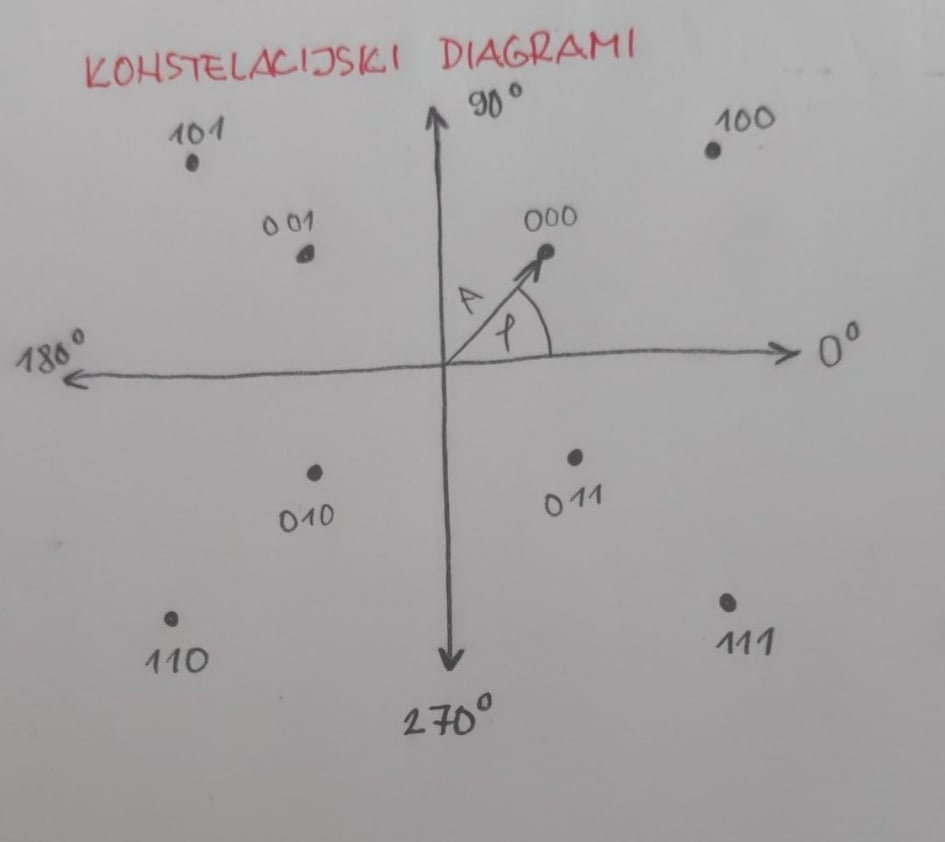 KONSTELACIJSKI DIAGRAMI
90°
101
100
001
000
A
φ
180°
0°
010
011
110
111
270°